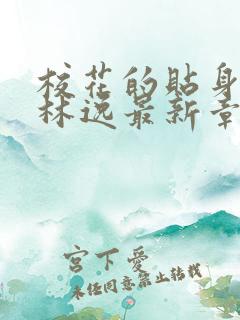 校花的贴身
林逸最新章
宫下爱
未经同意禁止转载